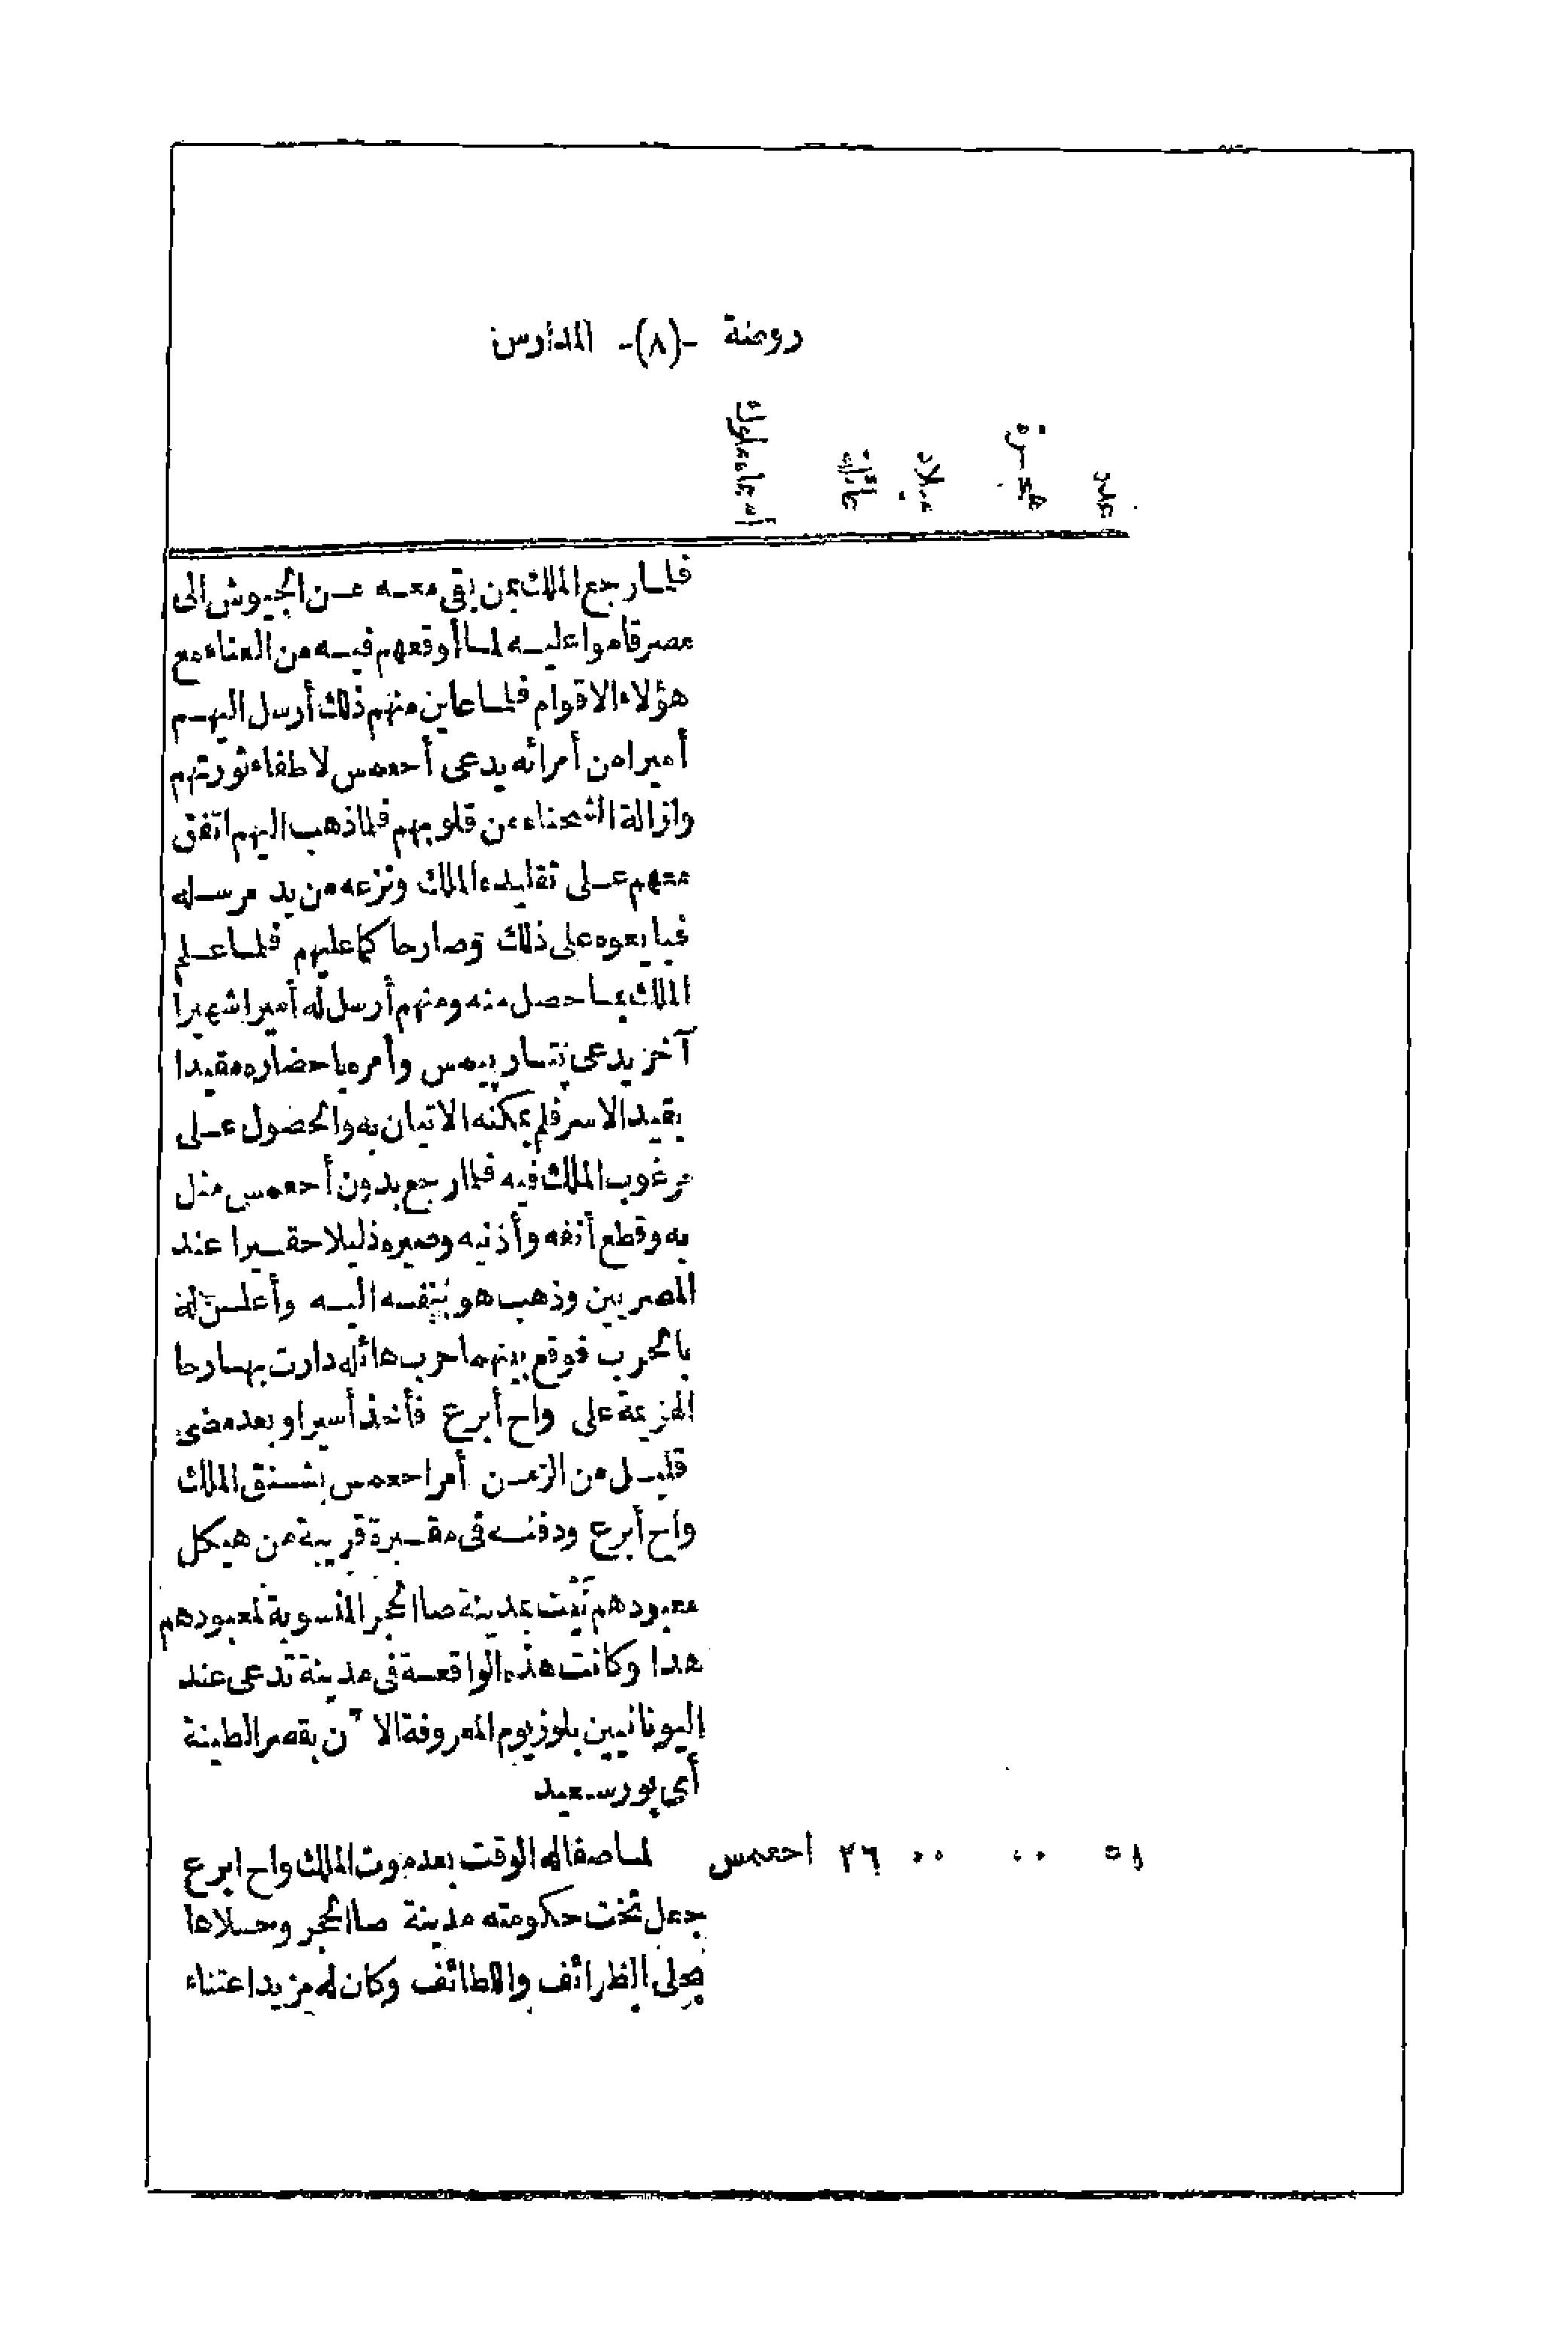 روضة -(٨)- المدارس
عدد هجرة ميلاد عائلة أسماء ملوك
فلما رجع الملك بمن بقى معه من الجيوش الى
مصر قاموا عليه لما أوقعهم فيه من العناء مع
هؤلاء الاقوام فلما عاين منهم ذلك أرسل اليهم
أميرا من أمرائه يدعى أحعمس لاطفاء ثورتهم
وازالة الشحناء من قلوبهم فلما ذهب اليهم اتفق
معهم على تقليده الملك ونزعه من يد مرسله
فبايعوه على ذلك وصار حاكما عليهم فلما علم
الملك بما حصل منه ومنهم أرسل له أميرا شهيرا
آخر يدعى پتار پيمس وأمره باحضاره مقيدا
بقيد الاسر فلم يمكنه الاتيان به والحصول على
مرغوب الملك فيه فلما رجع بدون أحعمس مثل
به وقطع أنفه وأذنيه وصيره ذليلا حقيرا عند
المصريين وذهب هو بنفسه اليه وأعلن له
بالحرب فوقع بينهما حرب هائله دارت بها رحا
الهزيمة على واح أبرع فأخذ أسيرا وبعد مضى
قليل من الزمن أمر احعمس بشنق الملك
واح أبرع ودفنه فى مقبرة قريبة من هيكل
معبودهم نيت بمدينة صا الحجر المنسوبة لمعبودهم
هدا وكانت هذه الواقعة فى مدينة تدعى عند
اليونانيين بلوزيوم المعروفة الآن بقصر الطينة
أى پورسعيد
٥١ ٠٠ ٠٠ ٢٦ احعمس لما صفا له الوقت بعد موت الملك واح ابرع
جعل تخت حكومته مدينة صا الحجر وحلاها
بحلى الظرائف واللطائف وكان له مزيد اعتناء